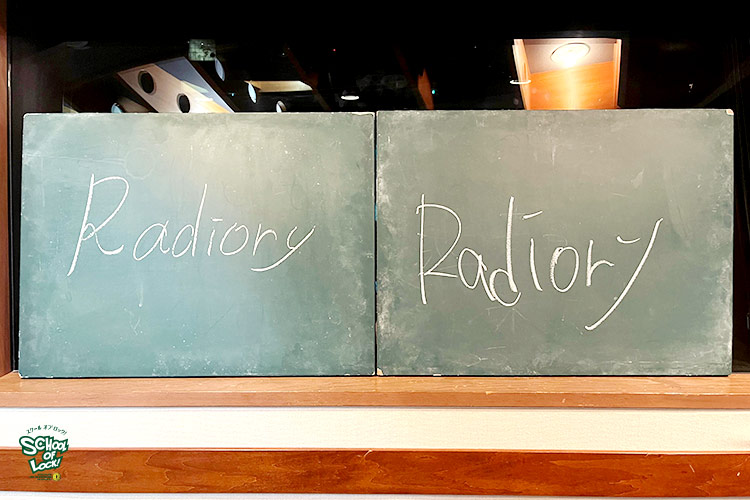 Radiory
Radiory
スクール オブ ロック!
SCHOOL
OF
LOCK!